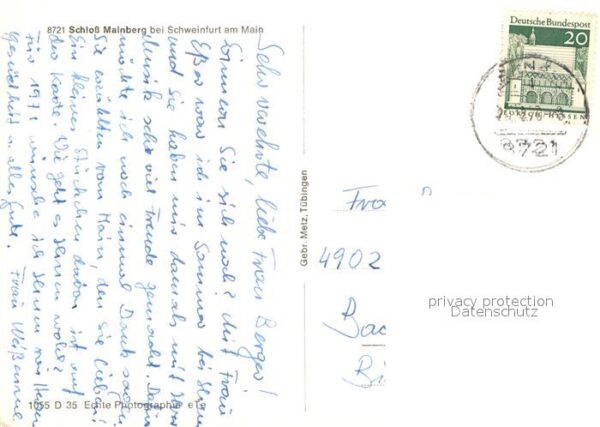 8721 Schloß Mainberg bei Schweinfurt am Main
Sehr verehrte, liebe Frau Berger!
Erinnern Sie sich noch? Mit Frau
war ich im Sommer bei Ihnen
und Sie haben mir damals mit Ihrer
Musik sehr viel Freude gemacht. Dafür
möchte ich noch einmal Dank sagen.
Sie erzählten vom Main, den Sie lieben!
Ein kleines Stückchen davon ist auf
der Karte. Wie geht es Ihnen wohl?
Für 1971 wünsche ich Ihnen von Herzen
Gesundheit u. alles Gute. Frau
1055 D 35 Echte Photographie
Gebr. Metz, Tübingen
Deutsche Bundespost
20
LORSCH/HESSEN
8721
4902
privacy protection
Datenschutz